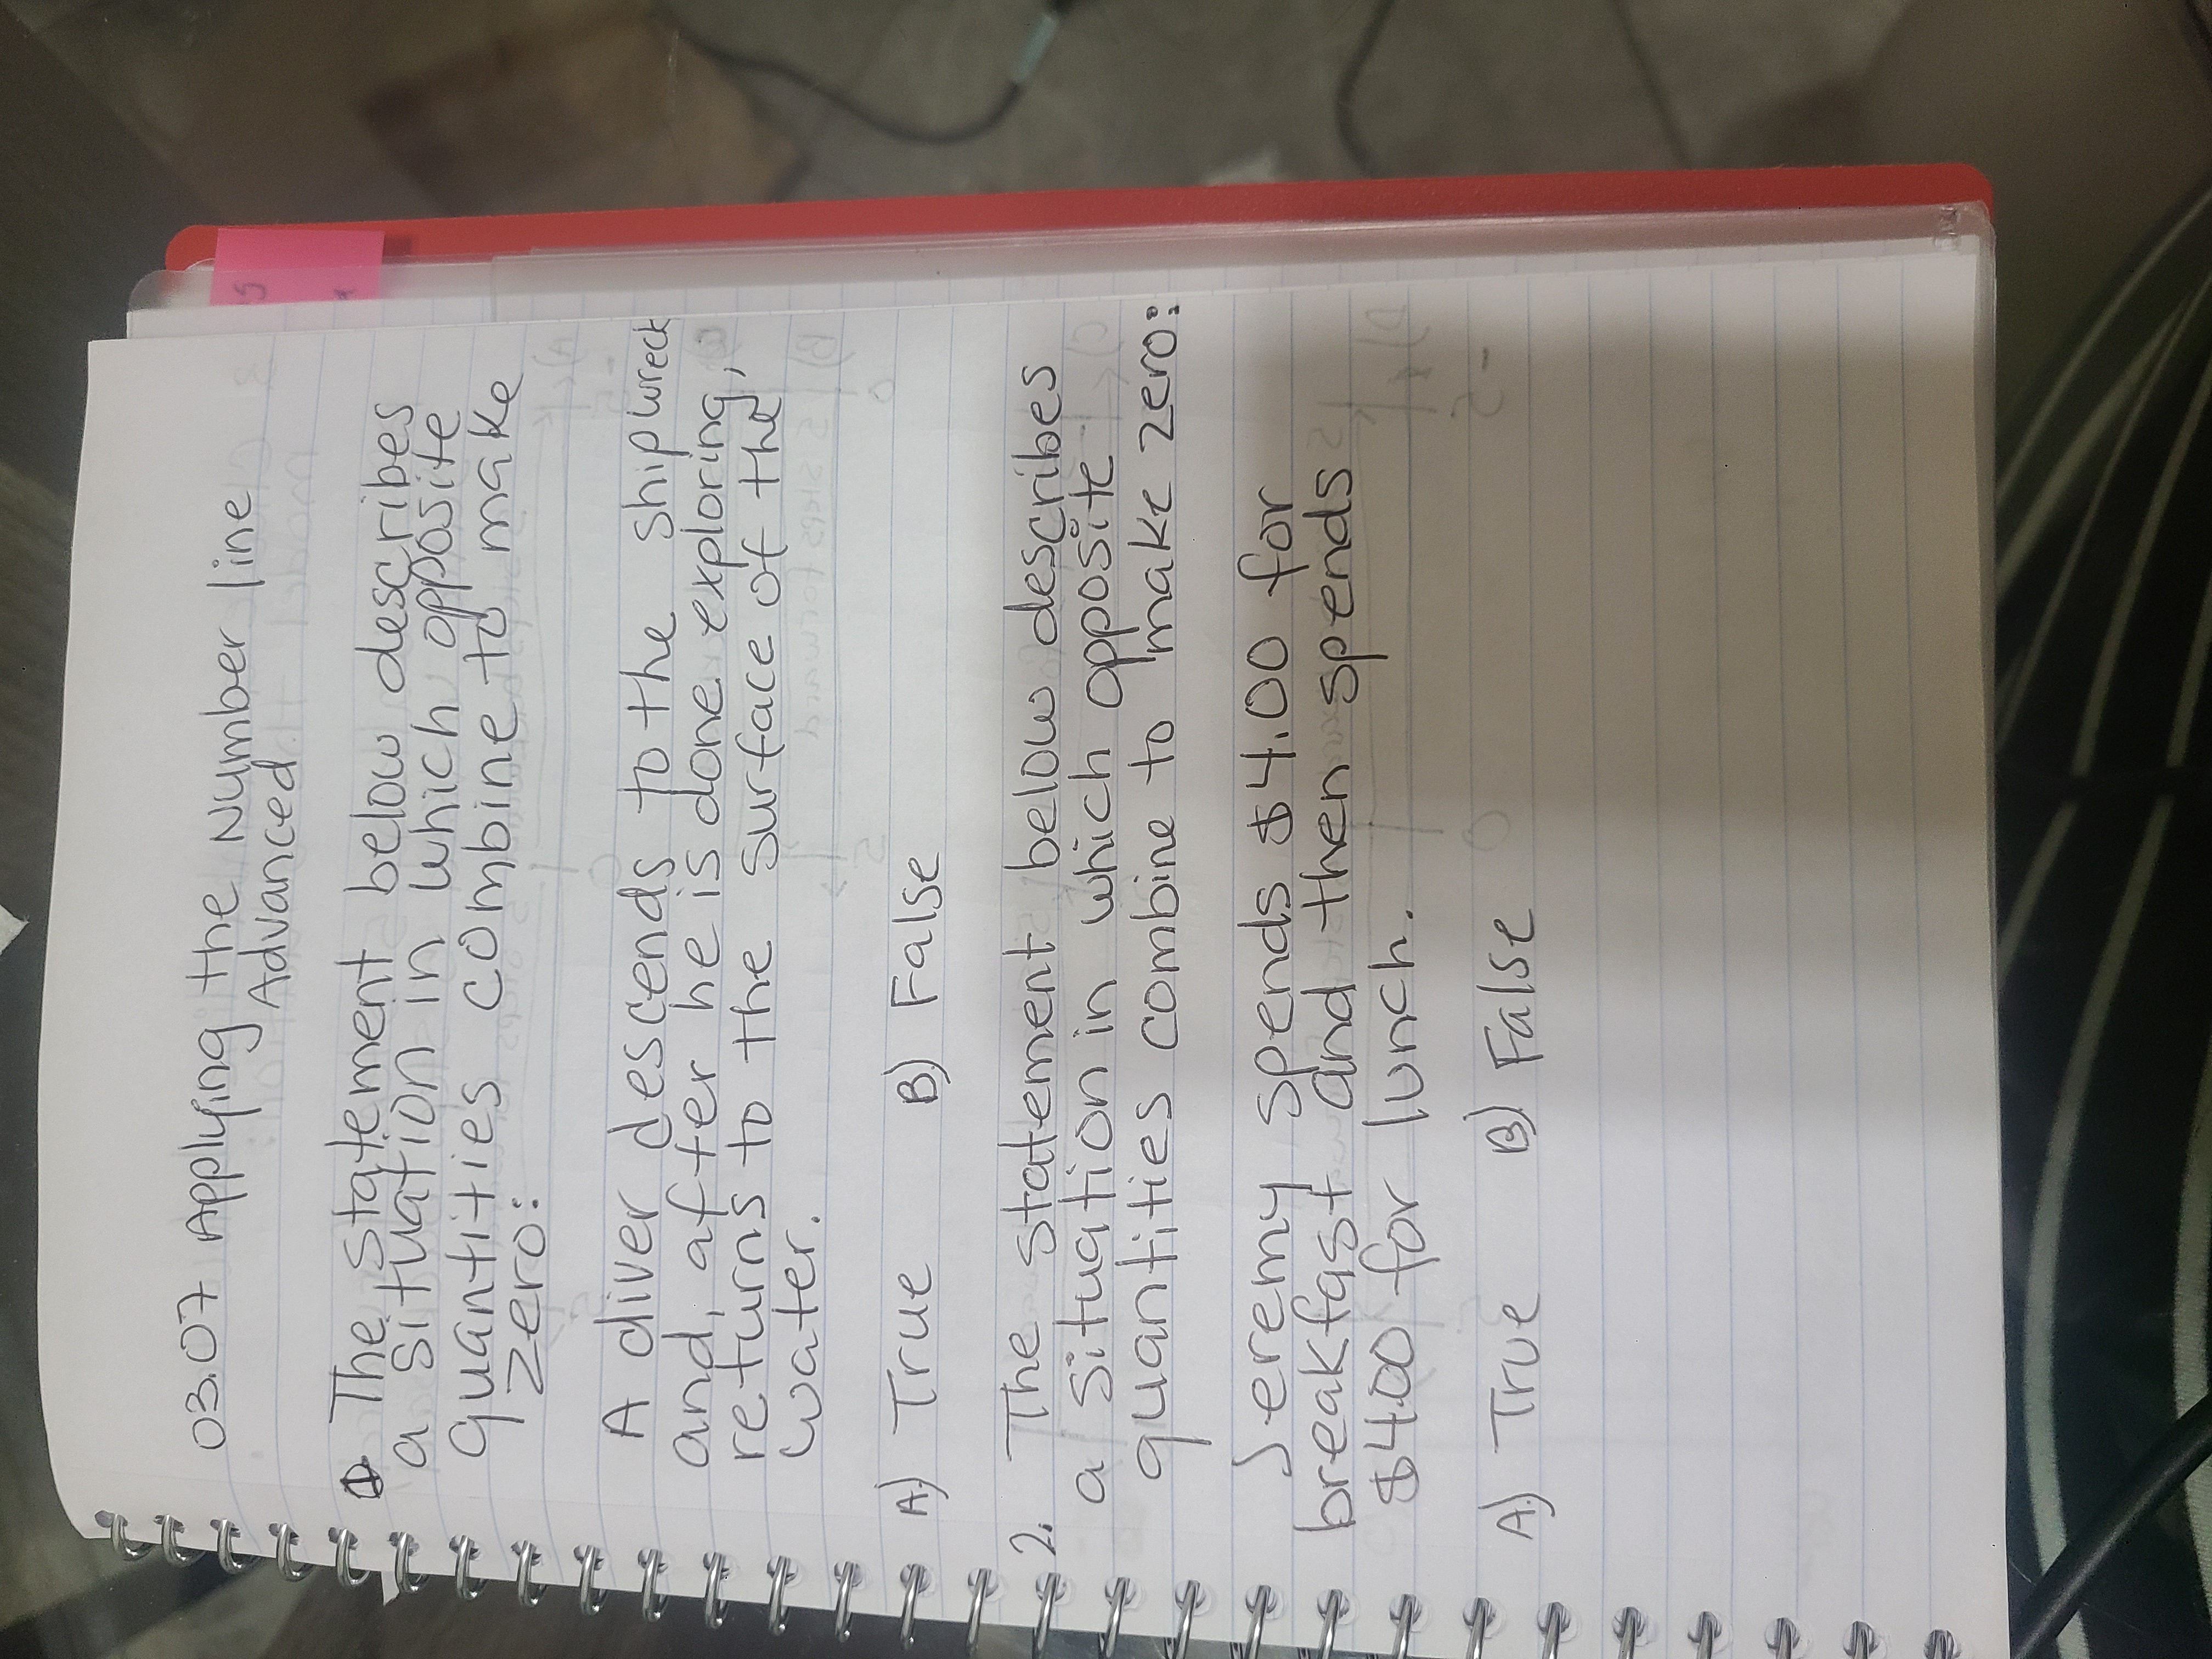 03.07 Applying the Number line
Advanced
1. The statement below describes
a situation in which opposite
quantities combine to make
zero:
A diver descends to the shipwreck
and, after he is done exploring,
returns to the surface of the
water.
A) True B) False
2. The statement below describes
a situation in which opposite
quantities combine to make zero:
Jeremy spends $4.00 for
breakfast and then spends
$4.00 for lunch.
A) True B) False